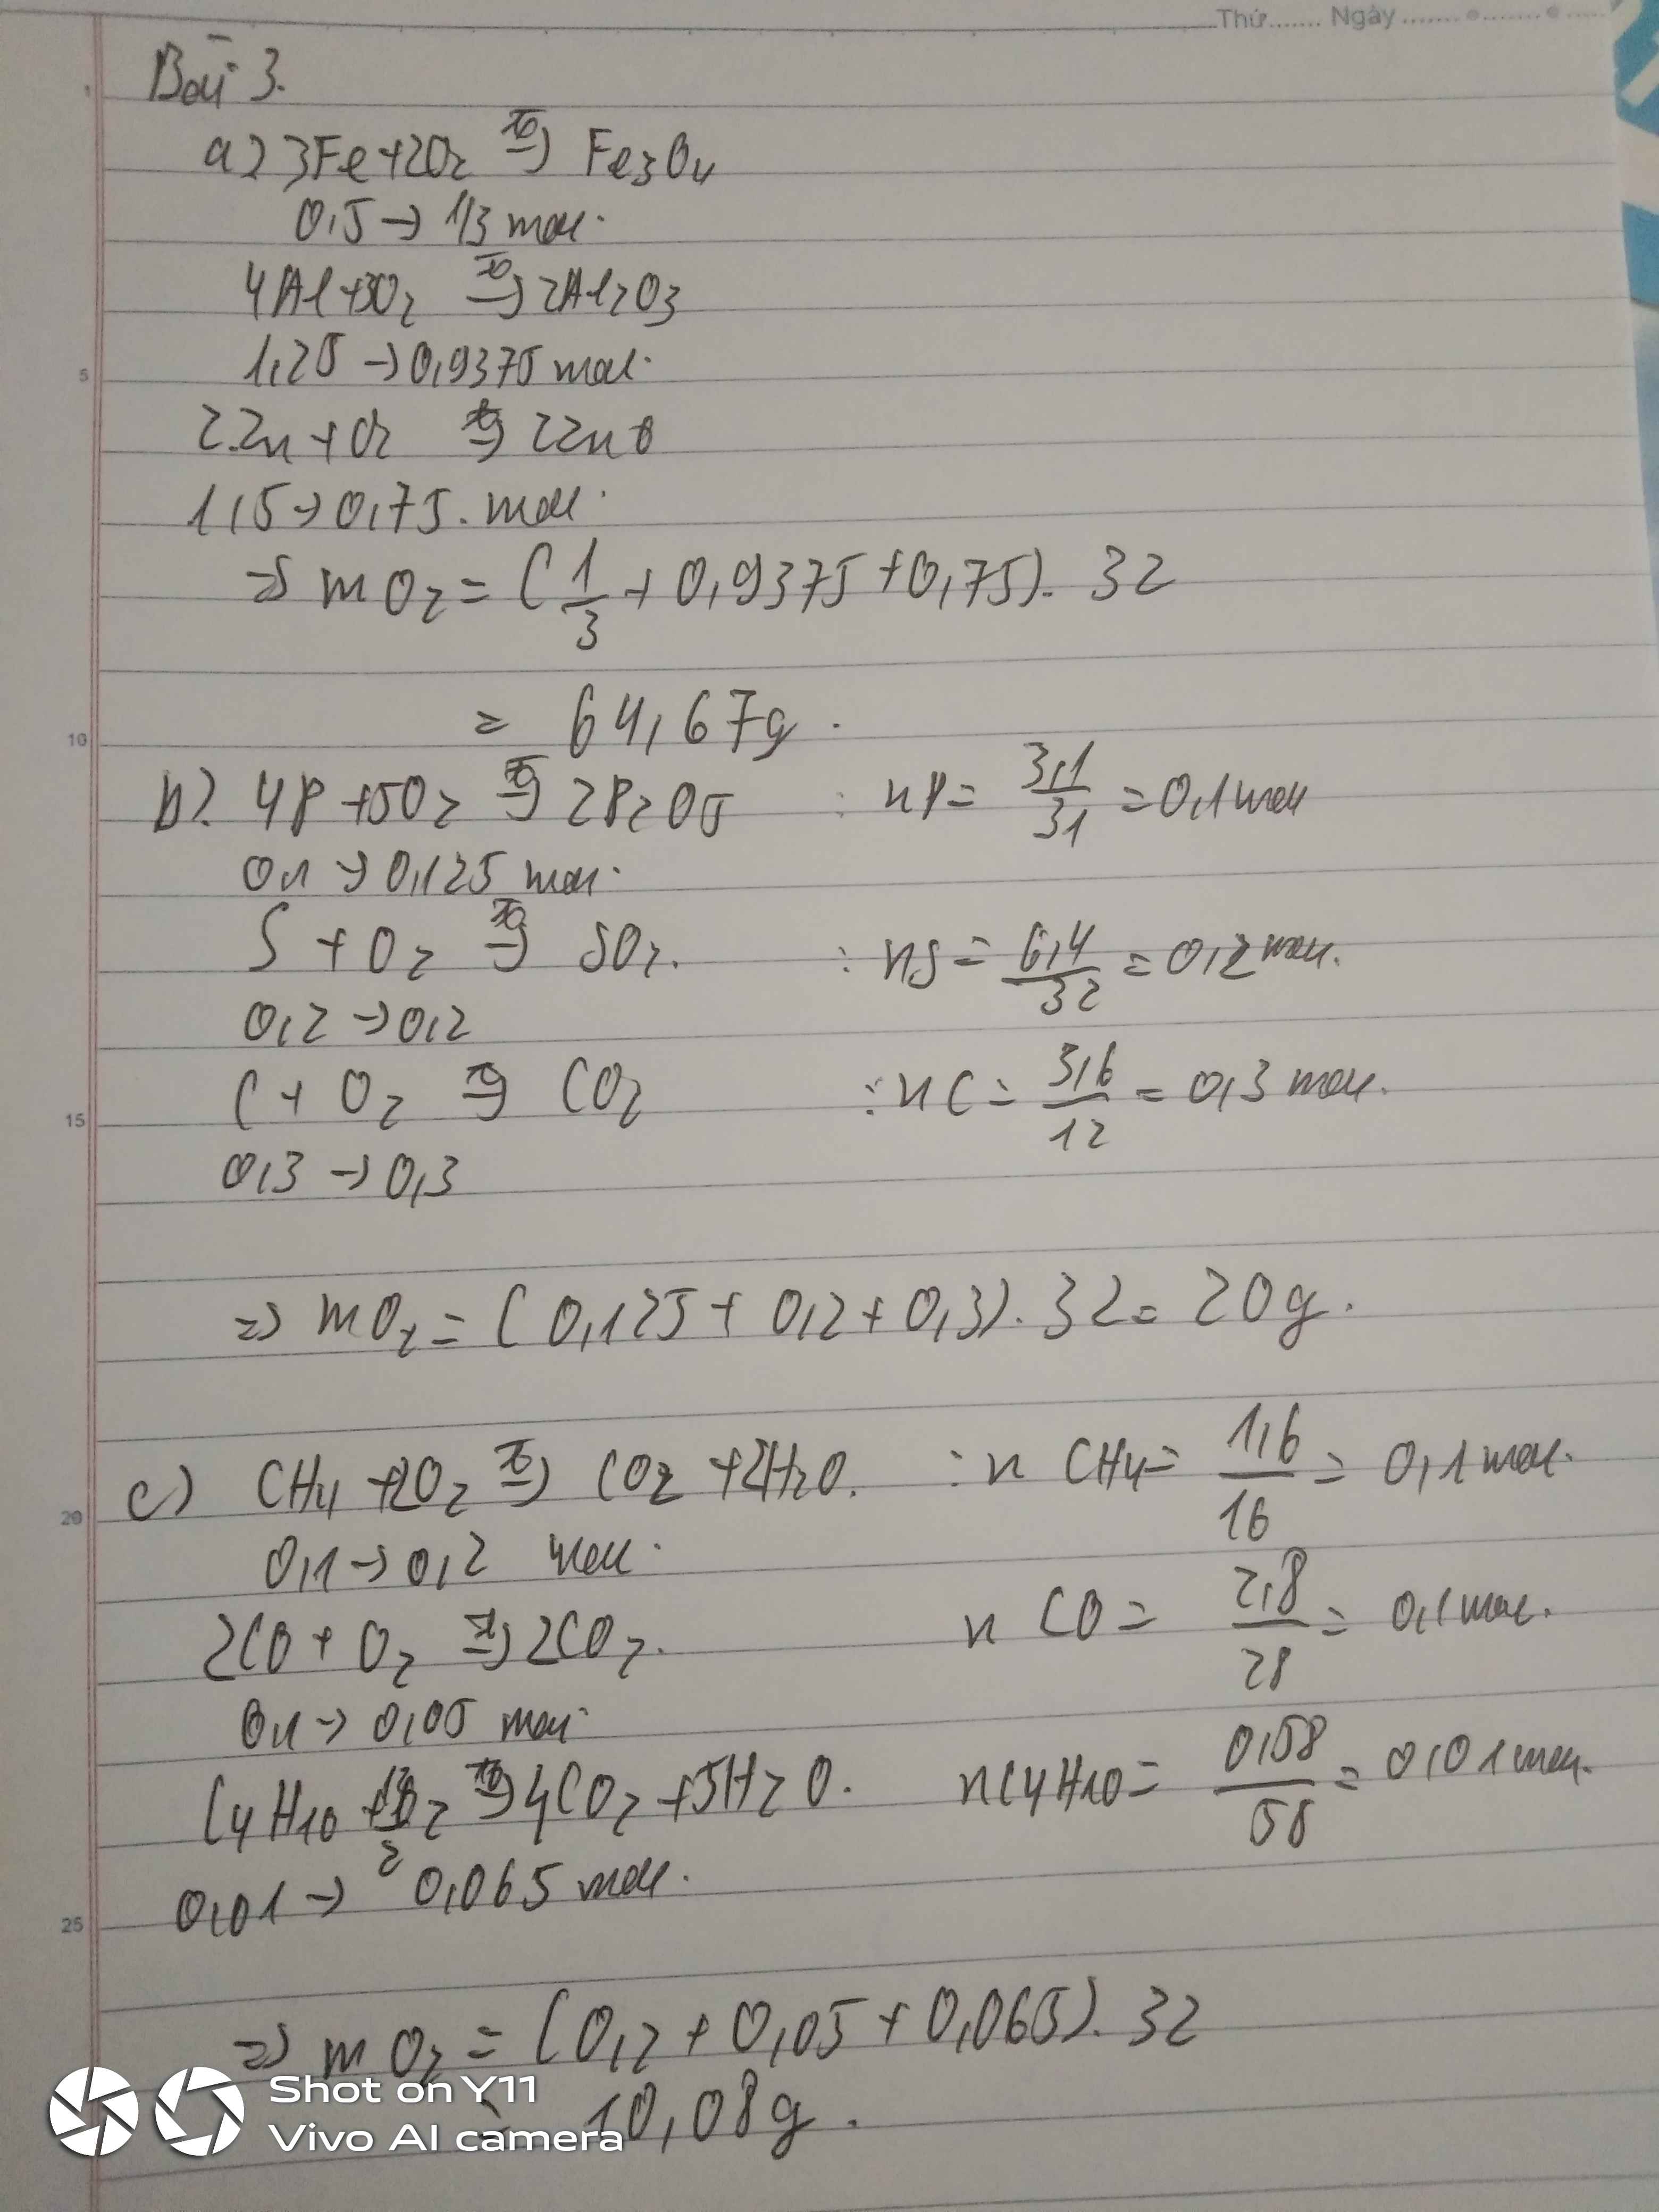 Thứ....... Ngày ....................
Bài 3.
a) 3Fe+2O2 t°→ Fe3O4
0,5 → 1/3 mol.
4Al+3O2 t°→ 2Al2O3
1,25 → 0,9375 mol.
2Zn+O2 t°→ 2ZnO
1,5 → 0,75. mol.
=> mO2 = (1/3 + 0,9375 + 0,75). 32
= 64,67g.
b) 4P+5O2 t°→ 2P2O5 : nP = 3,1/31 = 0,1 mol
0,1 → 0,125 mol.
S + O2 t°→ SO2. : nS = 6,4/32 = 0,2 mol.
0,2 → 0,2
C + O2 t°→ CO2 : nC = 3,6/12 = 0,3 mol.
0,3 → 0,3
=> mO2 = (0,125 + 0,2 + 0,3). 32 = 20g.
c) CH4 +2O2 t°→ CO2 +2H2O. : n CH4 = 1,6/16 = 0,1 mol.
0,1 → 0,2 mol.
2CO + O2 t°→ 2CO2. n CO = 2,8/28 = 0,1 mol.
0,1 → 0,05 mol.
C4H10 + 13/2 O2 t°→ 4CO2 +5H2O. nC4H10 = 0,58/58 = 0,01 mol.
0,01 → 0,065 mol.
=> mO2 = (0,2 + 0,05 + 0,065). 32
= 10,08g.
1
5
10
15
20
25
Shot on Y11
Vivo AI camera